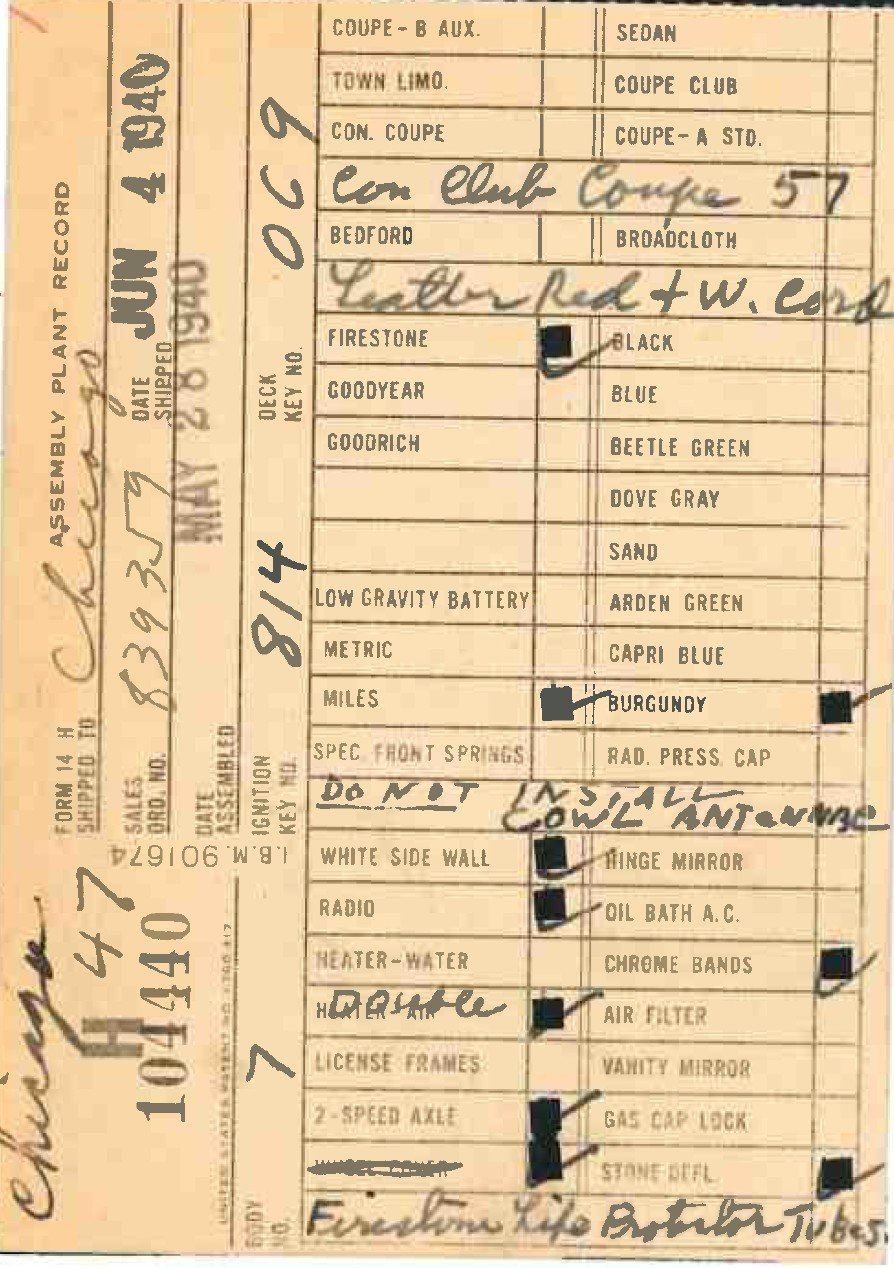 COUPE - B AUX. SEDAN
TOWN LIMO. COUPE CLUB
CON. COUPE COUPE - A STD.
Con Club Coupe 57
BEDFORD BROADCLOTH
Leather Red + W. Cord
FIRESTONE BLACK
GOODYEAR BLUE
GOODRICH BEETLE GREEN
DOVE GRAY
SAND
LOW GRAVITY BATTERY ARDEN GREEN
METRIC CAPRI BLUE
MILES BURGUNDY
SPEC. FRONT SPRINGS RAD. PRESS. CAP
DO NOT INSTALL
COWL ANTENNAE
WHITE SIDE WALL HINGE MIRROR
RADIO OIL BATH A.C.
HEATER-WATER CHROME BANDS
HEATER AIR Double AIR FILTER
LICENSE FRAMES VANITY MIRROR
2-SPEED AXLE GAS CAP LOCK
STONE DEFL.
Firestone Life Protector Tubes.
FORM 14 H ASSEMBLY PLANT RECORD
SHIPPED TO Chicago
SALES ORD. NO. 839359 DATE SHIPPED JUN 4 1940
DATE ASSEMBLED MAY 28 1940
IGNITION KEY NO. 814 DECK KEY NO. 069
I.B.M. 901674
Chicago
47
H
104440
BODY NO. 7